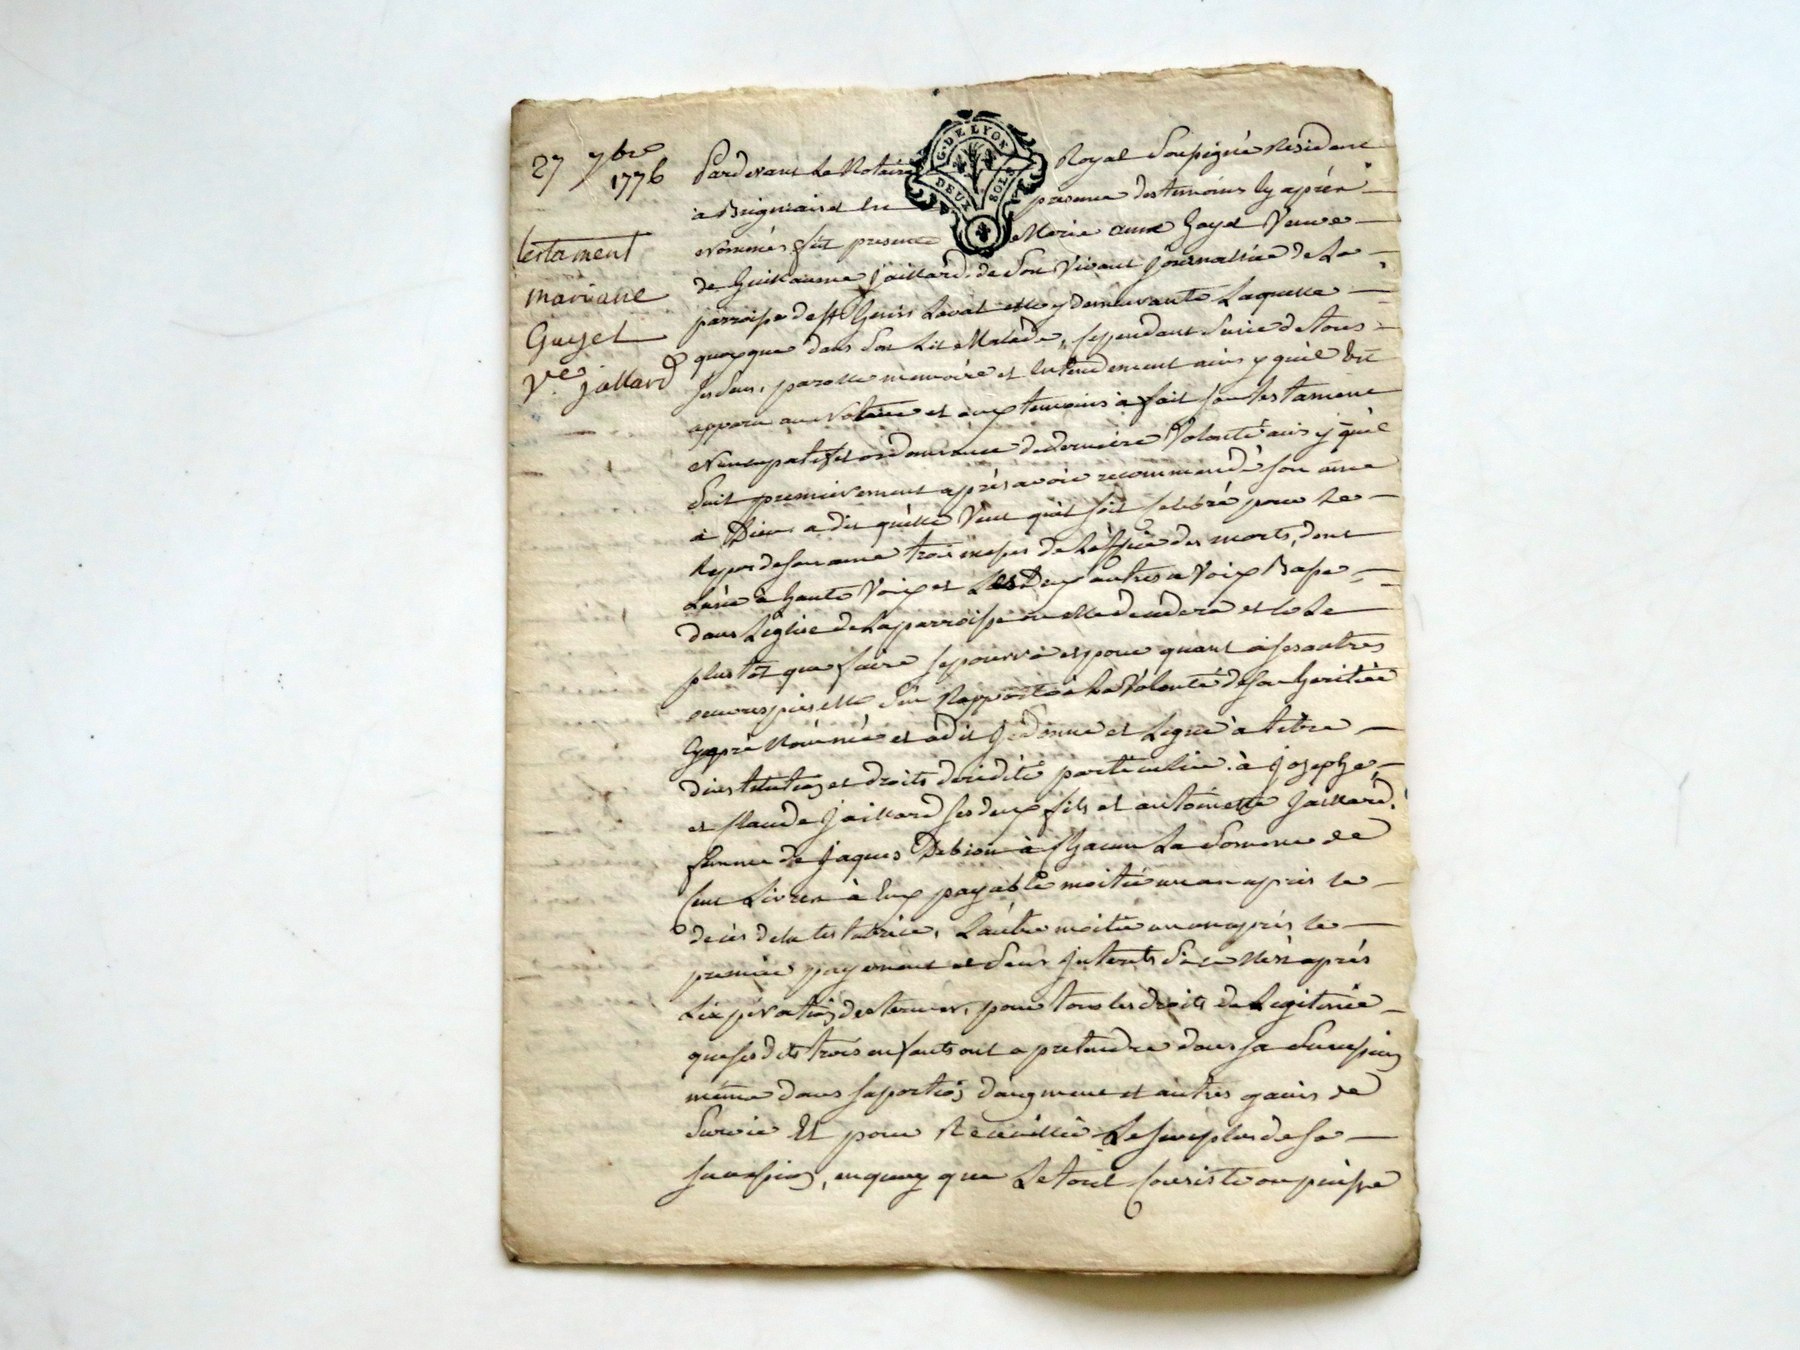 27 7bre
1776
testament
mariane
Guyet
Ve. jallard
G. DE LYON
DEUX SOLS
Pardevant Le Notaire Royal Soussigné Résident
à Brignais et en presence des temoins cy aprèn
nommés fût presente Marie anne Gayet Veuve
de Guillaume Jaillard, de Son Vivant journallié de La
parroisse de St Genis Laval elle y demeurante Laquelle
quoyque dans Son Lit Malade, cependant Saine de tous
ses Sens, parolle memoire et Entendement ainsy quil Est
apparu au Notaire et aux temoins à fait son testament
Nuncupatif et ordonnance de derniere Volonté ainsy quil
Suit premierement après avoir recommandé son âme
à Dieu a dit quelle Veut quil soit celebré pour Le
Repos de son ame trois messes de L'office des morts, dont
Lune à haute Voix et Les Deux autres a Voix Basse
dans Leglise de La parroisse ou elle decedera et ce Le
plustôt que faire se pourra et pour quant à ses autres
oeuvres pies elle s'en Rapporte à La Volonté de son heritier
cy aprè Nommé et a dit donne et Legue à titre
d'institution et droits particulier à Josephe
et Claude Jaillard ses deux fils et antoinette Jaillard,
femme de jaques Debion à chacun La Somme de
Cent Livres à Eux payable moitié un an après le
decès de la testatrice, L'autre moitié un an après le
premier payement et Sans Interets après
L'expiration des termes, pour tous les droits de Legitime
que ses dits trois enfants ont a pretendre dans sa Succession
même dans sa portion d'augment et autres gains de
Survie Et pour Recueillir Le surplus de sa
succession, en quoy que Le tout Consiste ou puisse